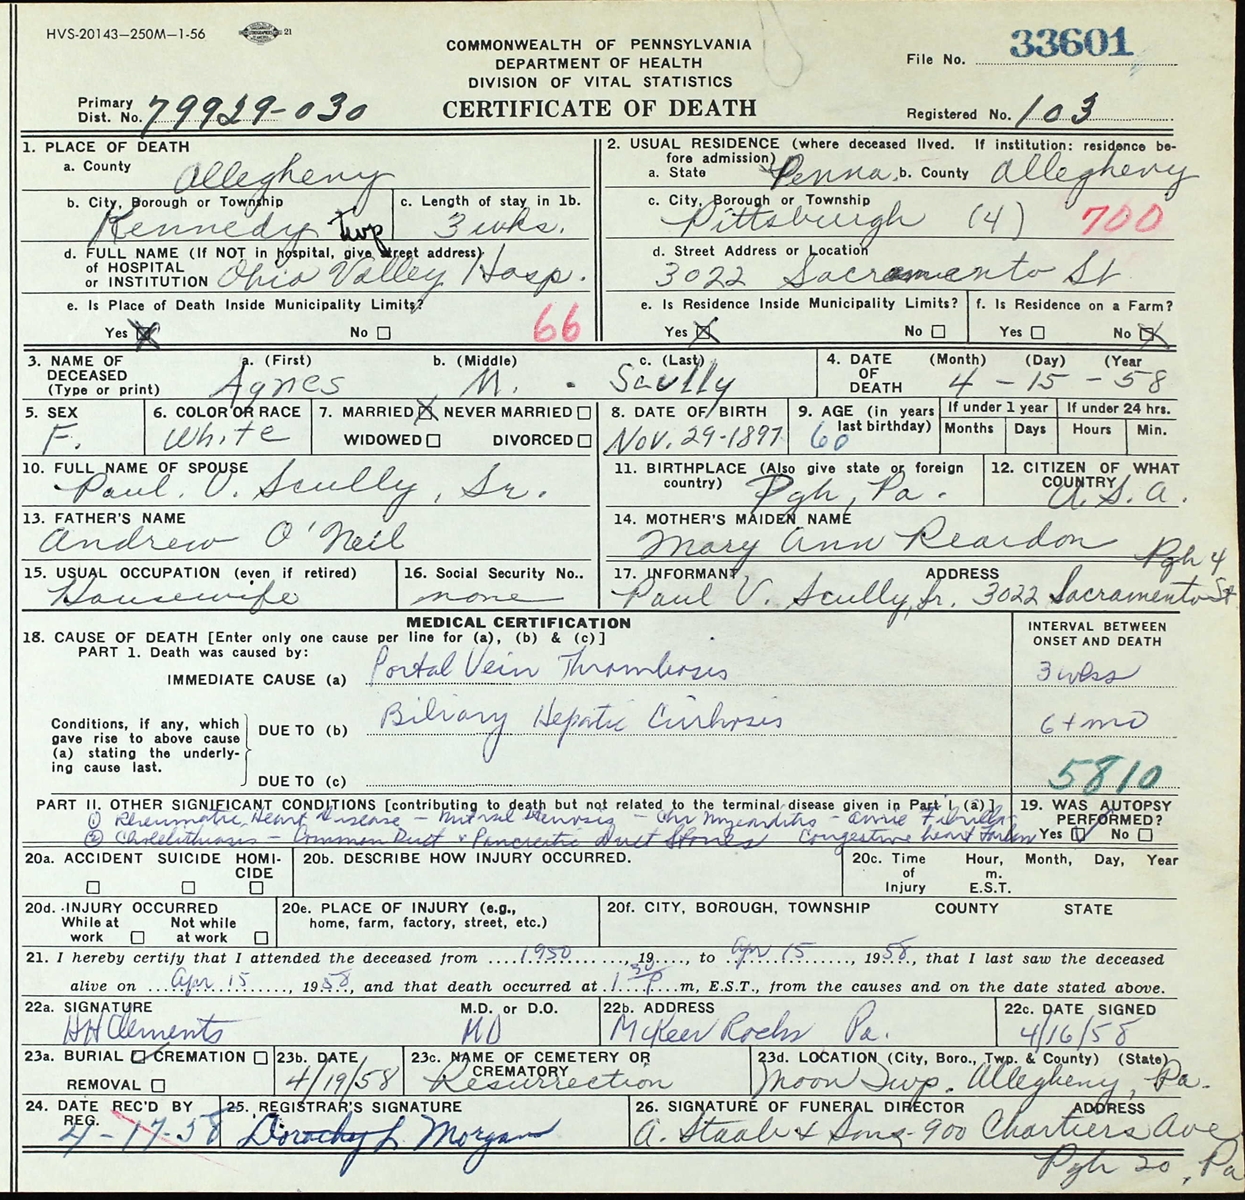 HVS-20143-250M-1-56 21
COMMONWEALTH OF PENNSYLVANIA
DEPARTMENT OF HEALTH
DIVISION OF VITAL STATISTICS
CERTIFICATE OF DEATH
File No. 33601
Primary Dist. No. 79929-030
Registered No. 103
1. PLACE OF DEATH
a. County Allegheny
b. City, Borough or Township Kennedy Twp
c. Length of stay in 1b. 3 wks.
d. FULL NAME (If NOT in hospital, give street address) of HOSPITAL or INSTITUTION Ohio Valley Hosp.
e. Is Place of Death Inside Municipality Limits?
Yes No 66
2. USUAL RESIDENCE (where deceased lived. If institution: residence before admission)
a. State Penna. b. County Allegheny
c. City, Borough or Township Pittsburgh (4) 700
d. Street Address or Location
3022 Sacramento St
e. Is Residence Inside Municipality Limits? f. Is Residence on a Farm?
Yes No Yes No
3. NAME OF DECEASED (Type or print) a. (First) b. (Middle) c. (Last)
Agnes M. Scully
4. DATE OF DEATH (Month) (Day) (Year
4 - 15 - 58
5. SEX F.
6. COLOR OR RACE White
7. MARRIED NEVER MARRIED
WIDOWED DIVORCED
8. DATE OF BIRTH Nov. 29-1897
9. AGE (in years last birthday) 60
If under 1 year If under 24 hrs.
Months Days Hours Min.
10. FULL NAME OF SPOUSE
Paul. V. Scully, Sr.
11. BIRTHPLACE (Also give state or foreign country) Pgh, Pa.
12. CITIZEN OF WHAT COUNTRY U.S.A.
13. FATHER'S NAME
Andrew O'Neil
14. MOTHER'S MAIDEN NAME
Mary Ann Reardon
15. USUAL OCCUPATION (even if retired)
Housewife
16. Social Security No..
none
17. INFORMANT ADDRESS Pgh 4
Paul V. Scully, Jr. 3022 Sacramento St
MEDICAL CERTIFICATION
18. CAUSE OF DEATH [Enter only one cause per line for (a), (b) & (c)]
INTERVAL BETWEEN ONSET AND DEATH
PART 1. Death was caused by:
IMMEDIATE CAUSE (a) Portal Vein Thrombosis 3 wks
Conditions, if any, which gave rise to above cause (a) stating the underlying cause last.
DUE TO (b) Biliary Hepatic Cirrhosis 6+ mo
DUE TO (c) 5810
PART II. OTHER SIGNIFICANT CONDITIONS [contributing to death but not related to the terminal disease given in Part I (a)]
① Rheumatic Heart Disease - Mitral Stenosis - Chr Myocarditis -
② Cholelithiasis - Common Duct & Pancreatic Duct Stones Congestive heart
19. WAS AUTOPSY PERFORMED?
Yes No
20a. ACCIDENT SUICIDE HOMICIDE
20b. DESCRIBE HOW INJURY OCCURRED.
20c. Time of Injury Hour, Month, Day, Year
m. E.S.T.
20d. INJURY OCCURRED
While at work Not while at work
20e. PLACE OF INJURY (e.g., home, farm, factory, street, etc.)
20f. CITY, BOROUGH, TOWNSHIP COUNTY STATE
21. I hereby certify that I attended the deceased from 1950, 19...., to Apr 15, 1958, that I last saw the deceased
alive on Apr 15, 1958, and that death occurred at 1 30 P. m, E.S.T., from the causes and on the date stated above.
22a. SIGNATURE M.D. or D.O.
HH Clements MD
22b. ADDRESS
McKees Rocks Pa.
22c. DATE SIGNED
4/16/58
23a. BURIAL CREMATION
REMOVAL
23b. DATE
4/19/58
23c. NAME OF CEMETERY OR CREMATORY
Resurrection
23d. LOCATION (City, Boro., Twp. & County) (State)
Moon Twp. Allegheny, Pa.
24. DATE REC'D BY REG.
4-17-58
25. REGISTRAR'S SIGNATURE
Dorothy L. Morgan
26. SIGNATURE OF FUNERAL DIRECTOR ADDRESS
A. Staab & Sons-900 Chartiers Ave
Pgh 20, Pa